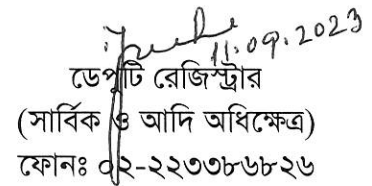 11.09.2023
ডেপুটি রেজিস্ট্রার
(সার্বিক ও আদি অধিক্ষেত্র)
ফোনঃ ০২-২২৩৩৮৬৮২৬